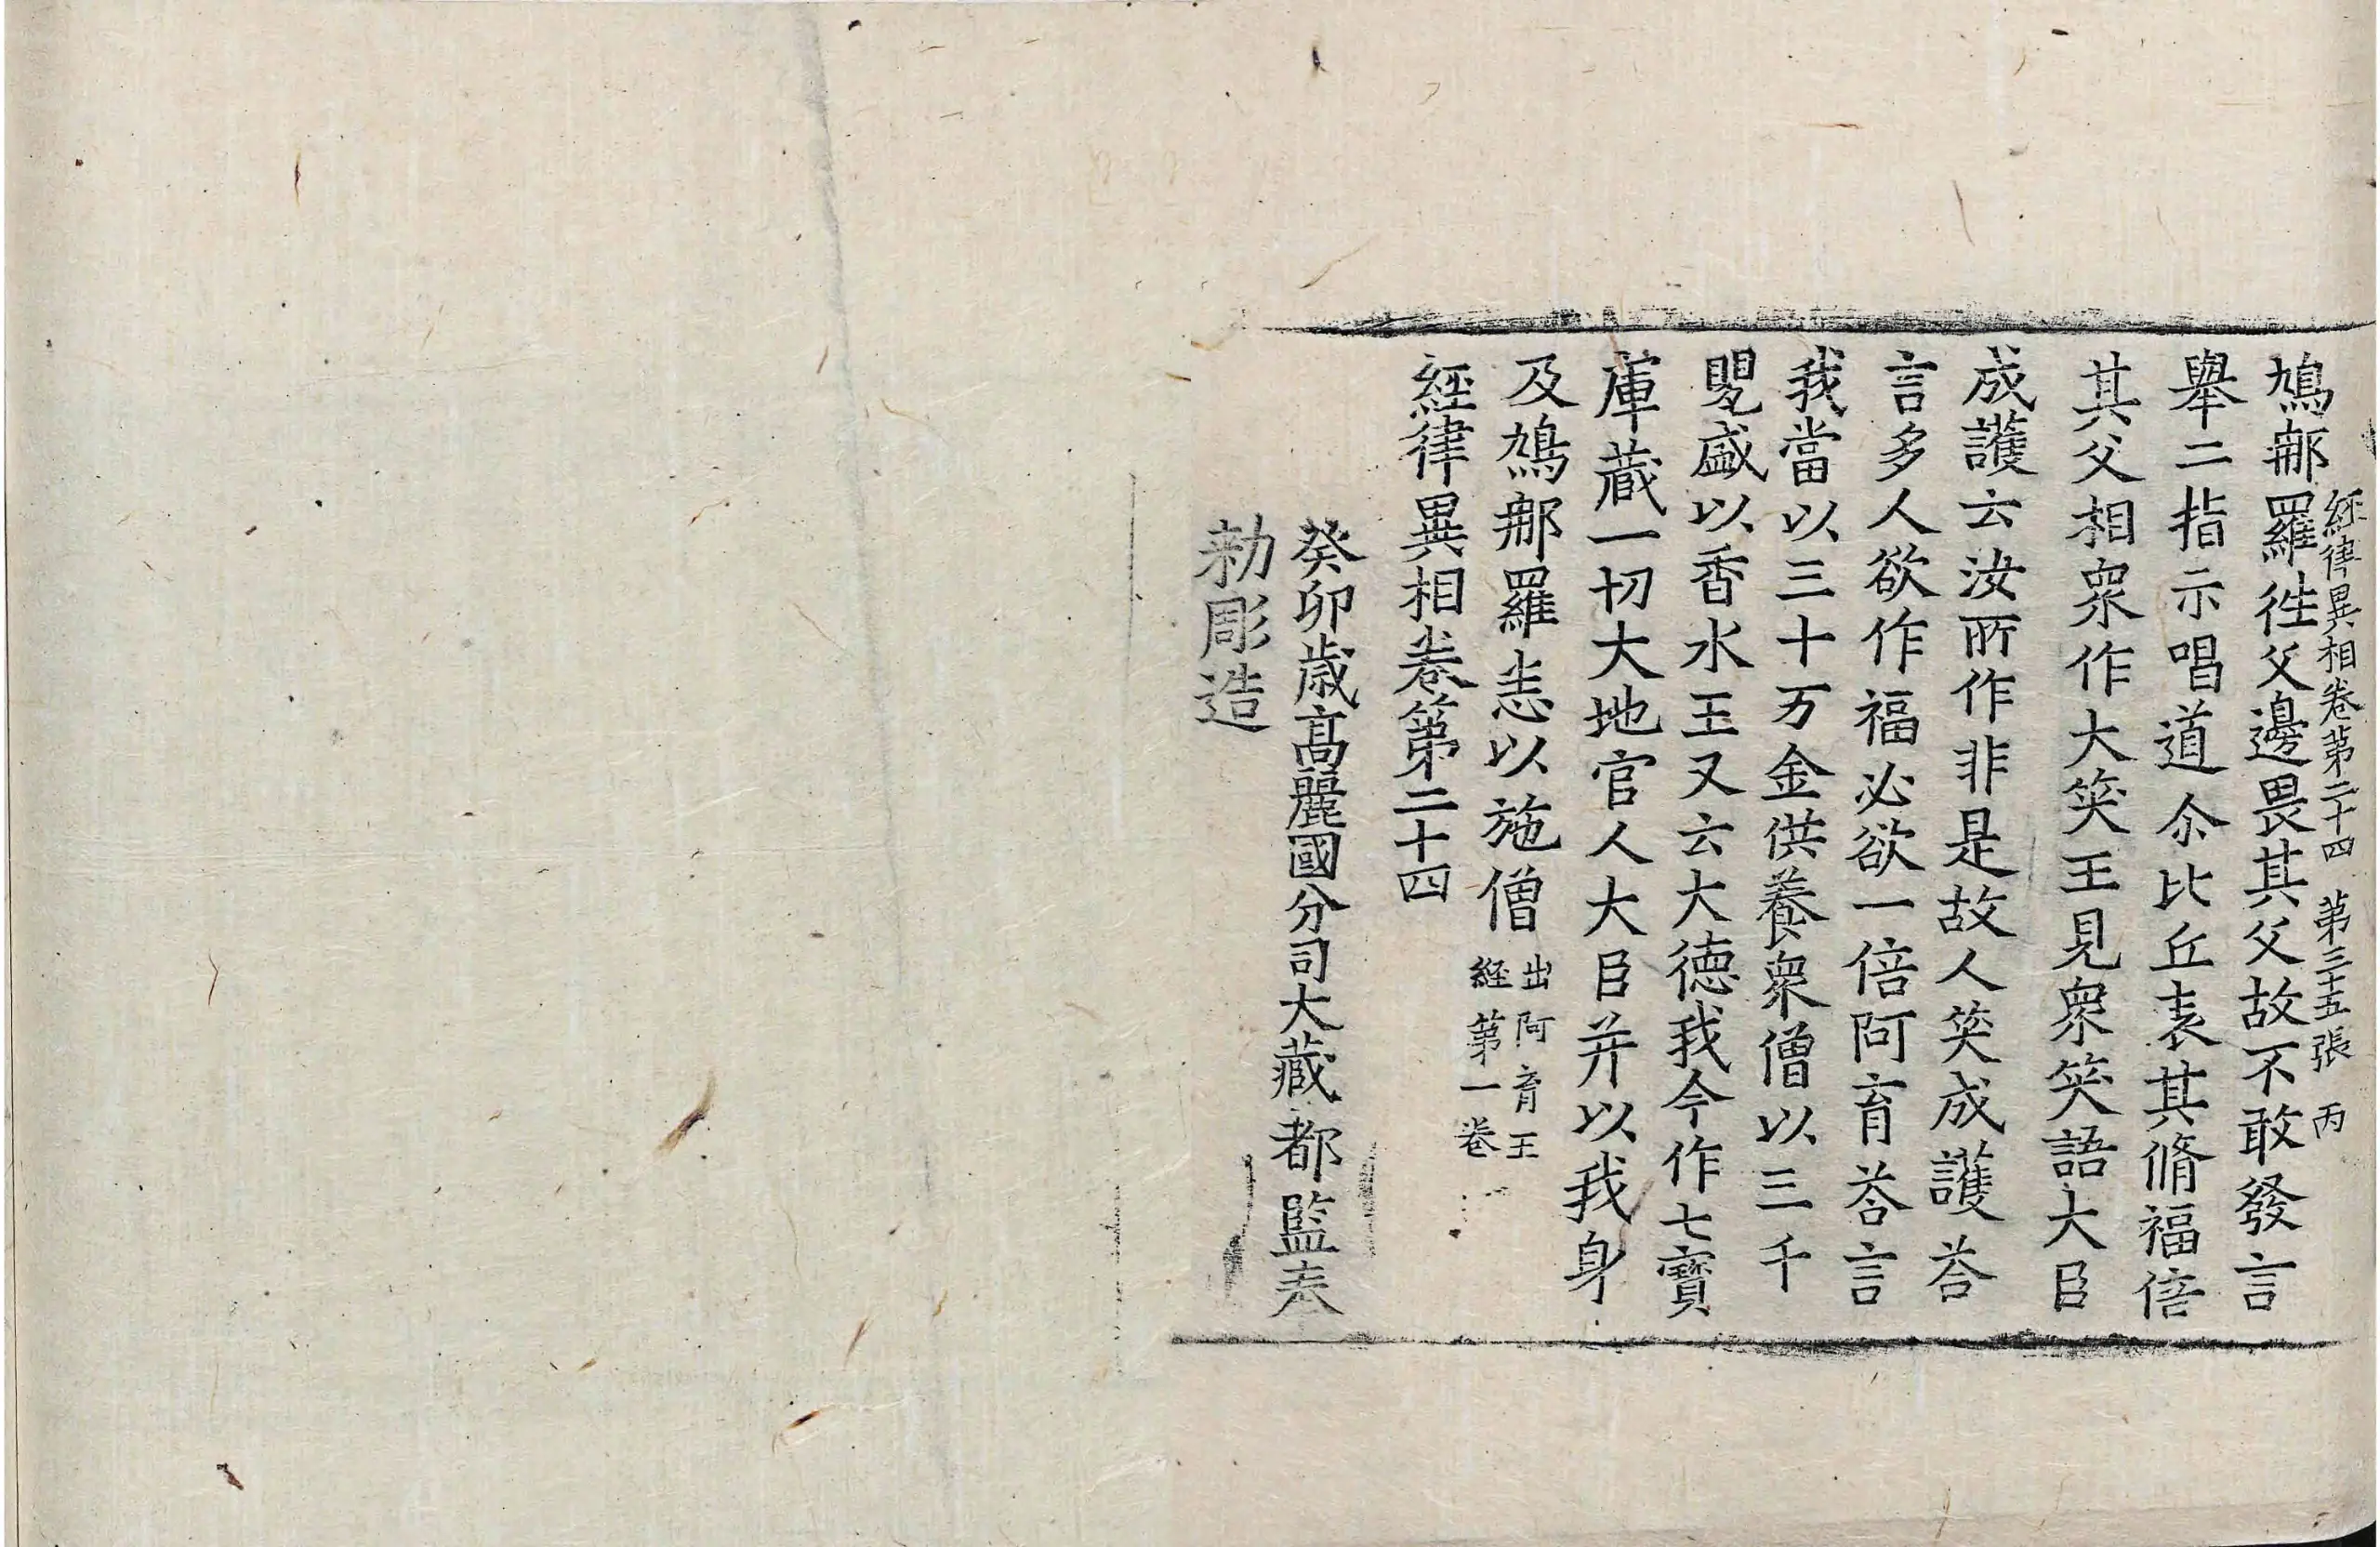 経律異相卷第二十四 第三十五張 丙
鳩那羅徃父邊畏其父故不敢發言
舉二指示唱道尒比丘表其脩福倍
其父相衆作大笑王見衆笑語大臣
成護云汝所作非是故人笑成護荅
言多人欲作福必欲一倍阿育荅言
我當以三十万金供養衆僧以三千
甖盛以香水王又云大德我今作七寶
庫藏一切大地官人大臣并以我身
及鳩那羅悉以施僧 出阿育王
経第一卷
経律異相卷第二十四
癸卯歲髙麗國分司大藏都監奉
勑彫造